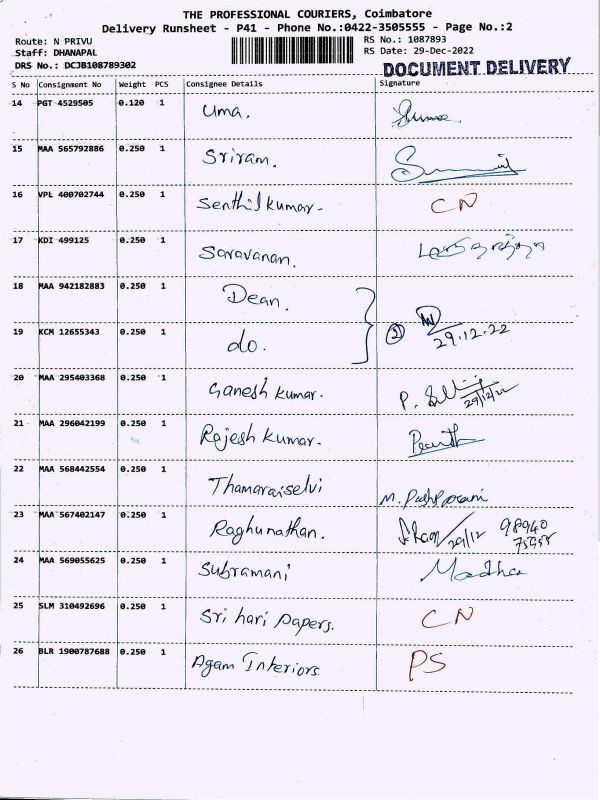 THE PROFESSIONAL COURIERS, Coimbatore
Delivery Runsheet - P41 - Phone No.:0422-3505555 - Page No.:2
Route: N PRIVU
RS No.: 1087893
Staff: DHANAPAL
RS Date: 29-Dec-2022
DRS No.: DCJB108789302
DOCUMENT DELIVERY
S No Consignment No Weight PCS Consignee Details Signature
14 PGT 4529505 0.120 1 Uma.
15 MAA 565792886 0.250 1 Sriram.
16 VPL 400702744 0.250 1 Senthilkumar- CN
17 KDI 499125 0.250 1 Saravanan.
18 MAA 942182883 0.250 1 Dean.
19 KCM 12655343 0.250 1 do. 2 29.12.22
20 MAA 295403368 0.250 1 Ganesh kumar. 29/12/22
21 MAA 296042199 0.250 1 Rajesh kumar.
22 MAA 568442554 0.250 1 Thamaraiselvi
23 MAA 567402147 0.250 1 Raghunathan. 29/12 98940
24 MAA 569055625 0.250 1 Subramani
25 SLM 310492696 0.250 1 Sri hari papers. CN
26 BLR 1900787688 0.250 1 Agam Interiors PS